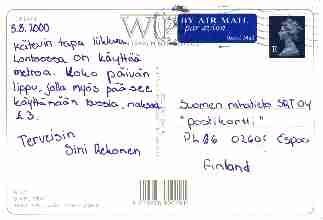 5.8.2000
Kätevin tapa liikkua
Lontoossa on käyttää
metroa. Koko päivän
lippu, jolla myös pääsee
käyttämään busseja, maksaa
£3.
Terveisin
Sini Rekonen
BY AIR MAIL
par avion
Royal Mail
E
Suomen rahatieto S&T OY
"postikortti"
PL 86 02601 Espoo
Finland